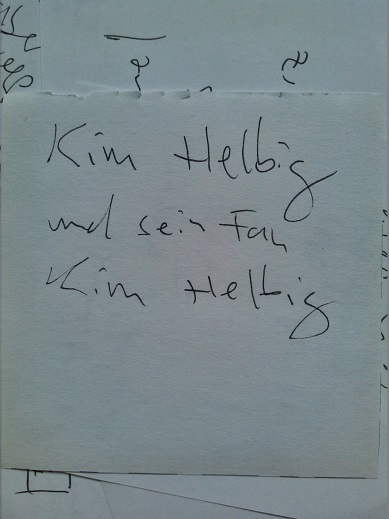 Kim Helbig
und sein Fan
Kim Helbig